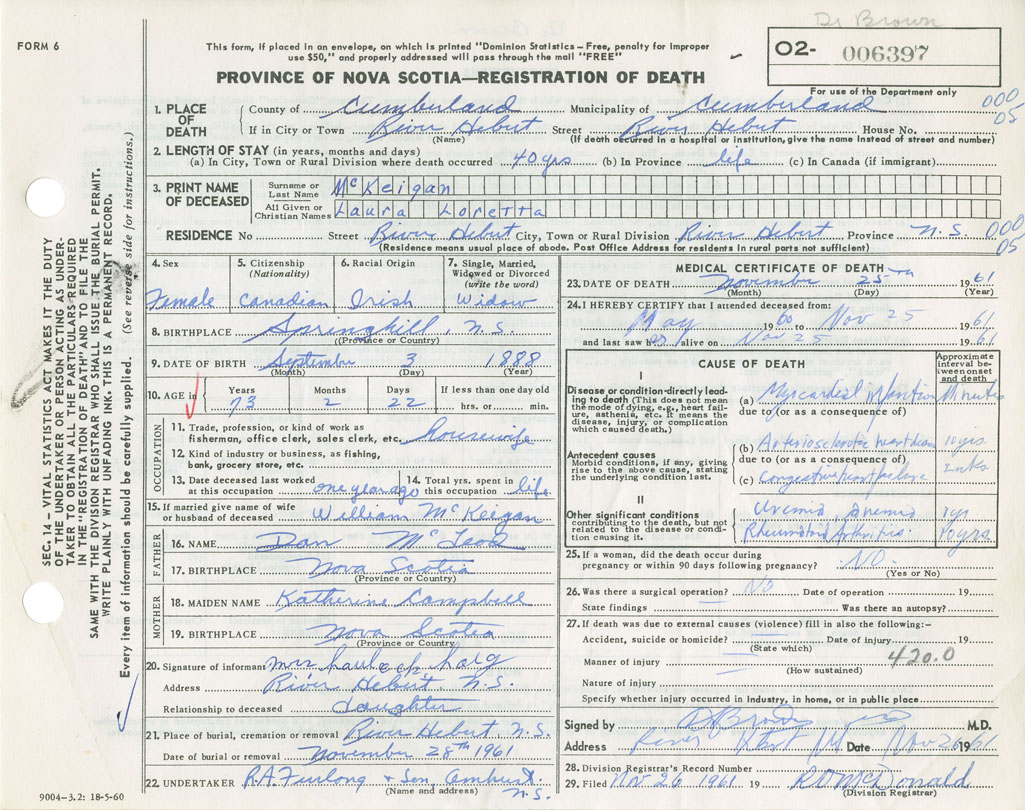 Dr Brown
FORM 6
This form, if placed in an envelope, on which is printed "Dominion Statistics–Free, penalty for improper
use $50," and properly addressed will pass through the mail "FREE"
O2- 006397
For use of the Department only
PROVINCE OF NOVA SCOTIA—REGISTRATION OF DEATH
1. PLACE OF DEATH
County of Cumberland Municipality of Cumberland 000
If in City or Town River Hebert Street River Hebert House No. 05
(Name) (If death occurred in a hospital or institution, give the name instead of street and number)
2. LENGTH OF STAY (in years, months and days)
(a) In City, Town or Rural Division where death occurred 40 yrs (b) In Province life (c) In Canada (if immigrant)
3. PRINT NAME OF DECEASED
Surname or Last Name McKeigan
All Given or Christian Names Laura Loretta
RESIDENCE No Street River Hebert City, Town or Rural Division River Hebert Province N.S. 000
(Residence means usual place of abode. Post Office Address for residents in rural parts not sufficient) 05
4. Sex
Female
5. Citizenship
(Nationality)
Canadian
6. Racial Origin
Irish
7. Single, Married,
Widowed or Divorced
(write the word)
Widow
8. BIRTHPLACE Springhill, N.S.
(Province or Country)
9. DATE OF BIRTH September 3 1888
(Month) (Day) (Year)
10. AGE in Years Months Days If less than one day old
73 2 22 hrs. or min.
OCCUPATION
11. Trade, profession, or kind of work as
fisherman, office clerk, sales clerk, etc. Housewife
12. Kind of industry or business, as fishing,
bank, grocery store, etc.
13. Date deceased last worked
at this occupation one year ago
14. Total yrs. spent in
this occupation life
15. If married give name of wife
or husband of deceased William McKeigan
FATHER
16. NAME Dan McLeod
17. BIRTHPLACE Nova Scotia
(Province or Country)
MOTHER
18. MAIDEN NAME Katherine Campbell
19. BIRTHPLACE Nova Scotia
(Province or Country)
20. Signature of informant Mrs
Address River Hebert, N.S.
Relationship to deceased daughter
21. Place of burial, cremation or removal River Hebert N.S.
Date of burial or removal November 28th 1961
22. UNDERTAKER R.A. Furlong & Son, Amherst
(Name and address) N.S.
9004–3.2: 18-5-60
MEDICAL CERTIFICATE OF DEATH
23. DATE OF DEATH November 25th 1961
(Month) (Day) (Year)
24. I HEREBY CERTIFY that I attended deceased from:
May 1960 to Nov 25 1961
and last saw her alive on Nov 25 1961
CAUSE OF DEATH
Approximate
interval between
onset
and death
I
Disease or condition directly leading
to death (This does not mean
the mode of dying, e.g., heart failure,
asthenia, etc. It means the
disease, injury, or complication
which caused death.)
(a) Myocardial Infarction Minutes
due to (or as a consequence of)
Antecedent causes
Morbid conditions, if any, giving
rise to the above cause, stating
the underlying condition last.
(b) Arteriosclerotic heart disease 10 yrs.
due to (or as a consequence of)
(c) Congestive heart failure 2 wks
II
Other significant conditions
contributing to the death, but not
related to the disease or condition
causing it.
Uremia, Anemia 1 yr
Rheumatoid Arthritis. 40 yrs
25. If a woman, did the death occur during
pregnancy or within 90 days following pregnancy? NO
(Yes or No)
26. Was there a surgical operation? No Date of operation 19
State findings Was there an autopsy?
27. If death was due to external causes (violence) fill in also the following:–
Accident, suicide or homicide? Date of injury 19
(State which)
Manner of injury 420.0
(How sustained)
Nature of injury
Specify whether injury occurred in industry, in home, or in public place
Signed by D Brown M.D.
Address River Hbt NS Date Nov 26 1961
28. Division Registrar's Record Number
29. Filed Nov 26 1961 19 McDonald
(Division Registrar)
SEC. 14 – VITAL STATISTICS ACT MAKES IT THE DUTY
OF THE UNDERTAKER OR PERSON ACTING AS UNDERTAKER
TO OBTAIN ALL THE PARTICULARS REQUIRED
IN THE "REGISTRATION OF DEATH" AND TO FILE THE
SAME WITH THE DIVISION REGISTRAR WHO SHALL ISSUE THE BURIAL PERMIT.
WRITE PLAINLY WITH UNFADING INK. THIS IS A PERMANENT RECORD.
Every item of information should be carefully supplied. (See reverse side for instructions.)